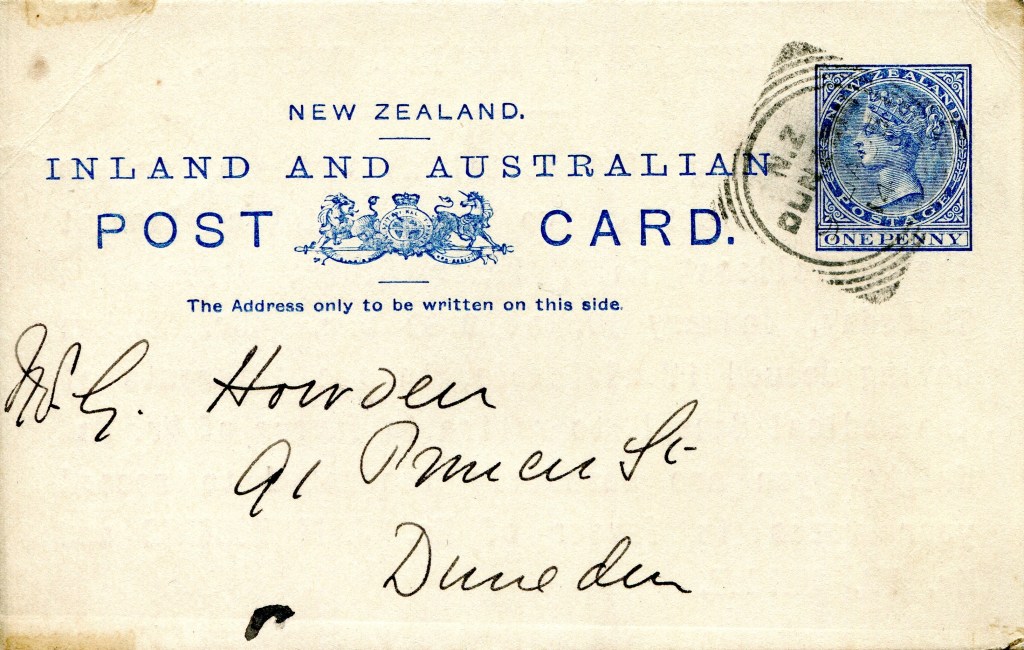 NEW ZEALAND.
INLAND AND AUSTRALIAN
POST CARD.
The Address only to be written on this side.
NEW ZEALAND
POSTAGE
ONE PENNY
N.Z
DUN
W. G. Howden
91 Princes St
Dunedin